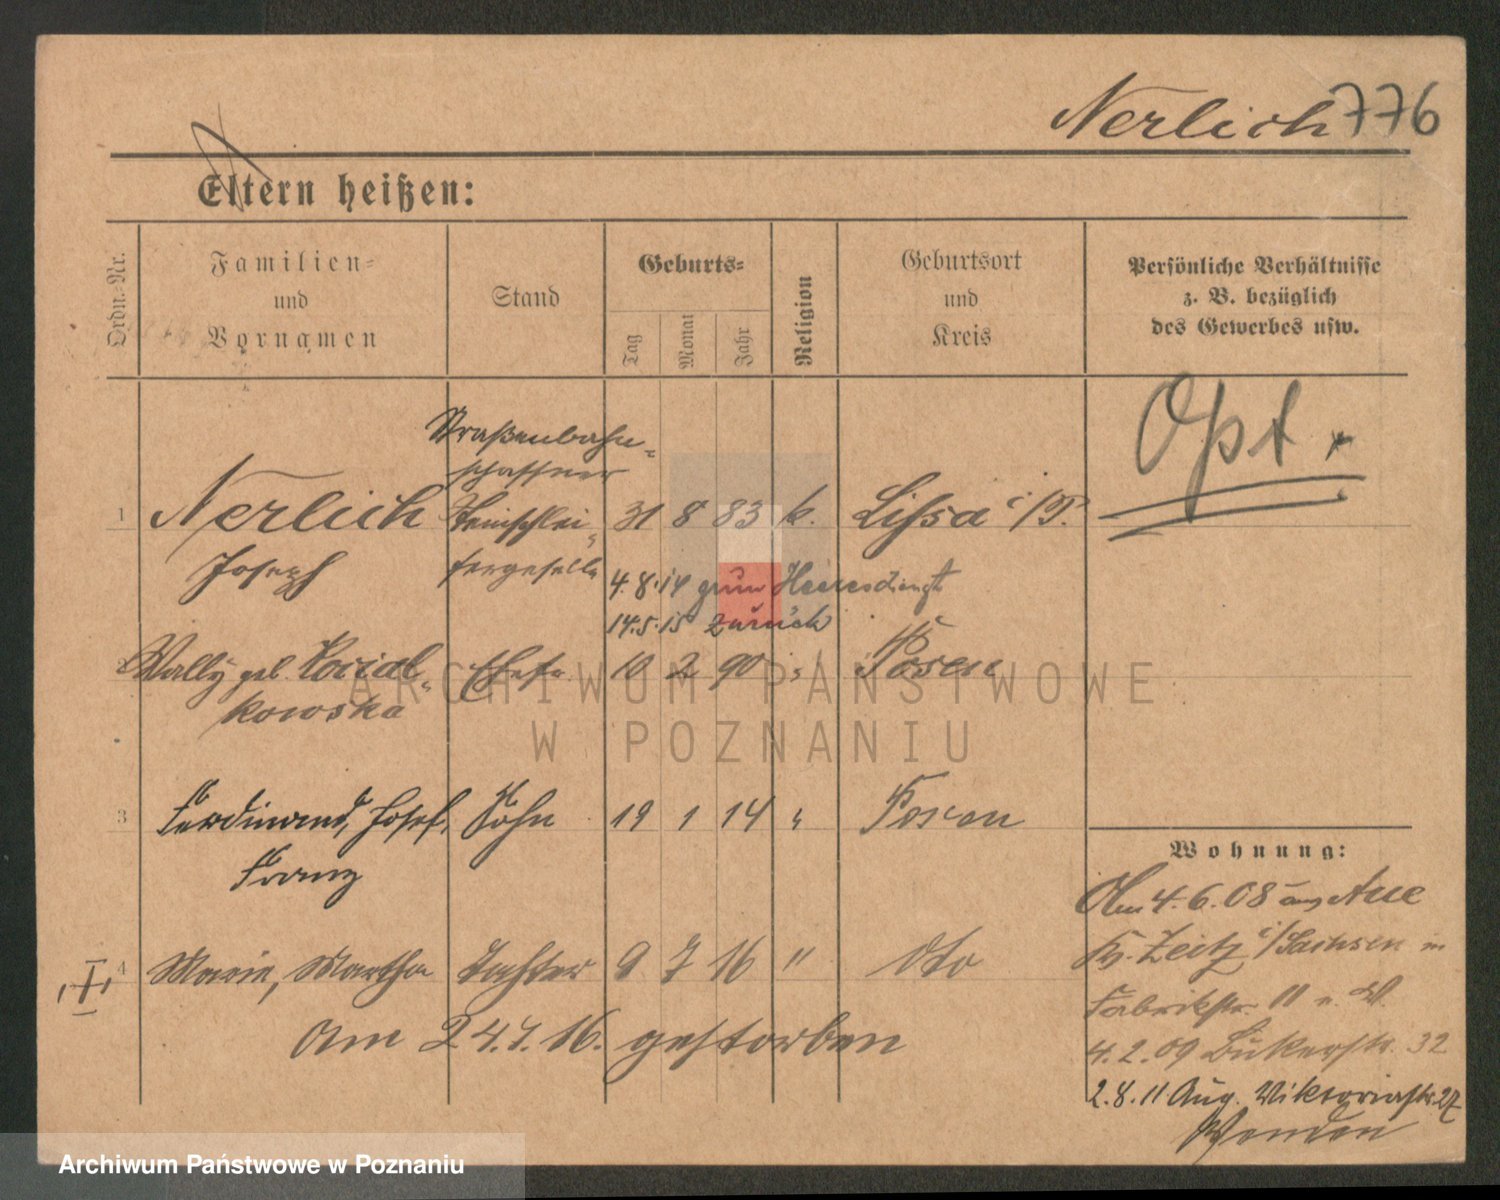 Nerlich 776
Eltern heißen:
Ordn.-Nr.
Familien-
und
Vornamen
Stand
Geburts-
Tag
Monat
Jahr
Religion
Geburtsort
und
Kreis
Persönliche Verhältnisse
z. B. bezüglich
des Gewerbes usw.
Opt.
Straßenbahn-
schaffner
1 Nerlich Steinschlei- 31 8 83 k. Lissa i/P.
Joseph fergeselle
4.8.14 zum Heeresdienst
14.5.15 zurück
2 Wally geb. Ehefr. 10 2 90 " Posen
kowska
3 Ferdinand, Josef, Sohn 19 1 14 " Posen
Franz
4 Marie, Martha Tochter 9 7 16 " dto
Am 24.7.16. gestorben
Wohnung:
Am 4.6.08 aus Aue
Kr. Zeitz i/Sachsen in
Fabrikstr. 11 u. W.
4.2.09 Bukerstr. 32
2.8.11 Aug. Viktoriastr. 27
Wenden
ARCHIWUM PAŃSTWOWE
W POZNANIU
Archiwum Państwowe w Poznaniu